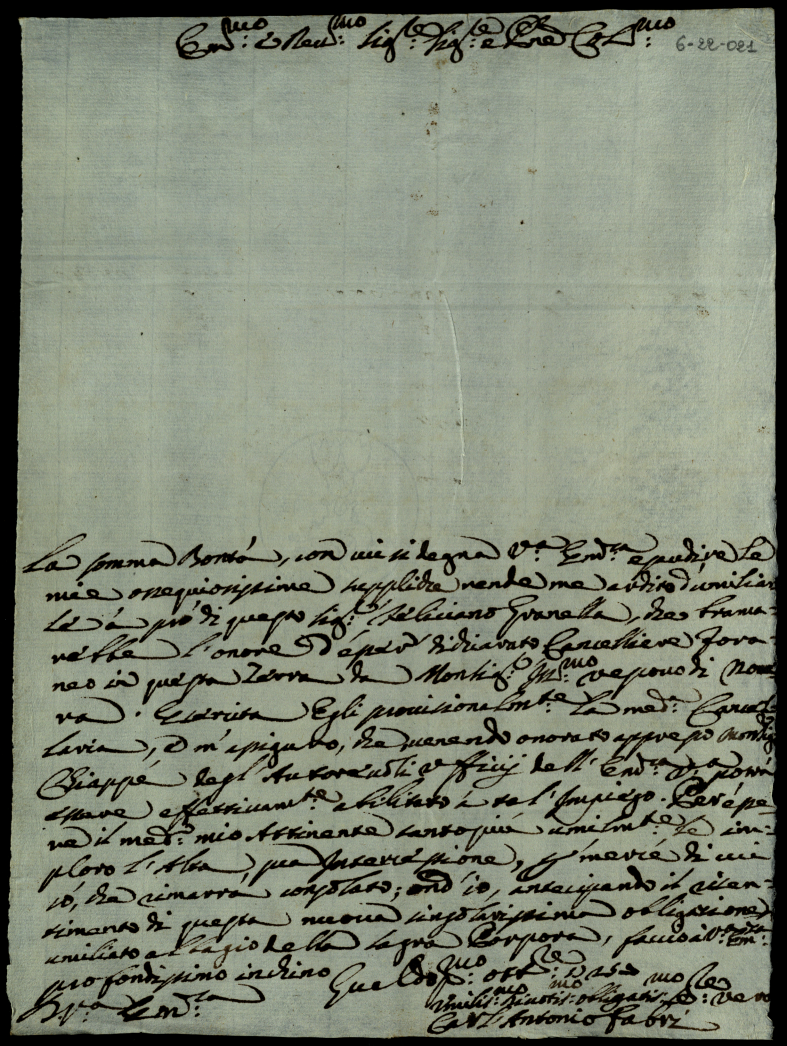 Em.mo e Rev.mo Sig.re Sig.re e P.rone Col.mo
6-22-021
La somma Bontà, con cui si degna V.a Em.za esaudire le
mie ossequiosissime suppliche rende me ardito d'umiliar
le à prò di questo Sig.r Feliciano Granella, che brama-
rebbe l'onore d'esser dichiarato Cancelliere Fora-
neo in questa Terra da Monsig.r Ill.mo Vescovo di
. Esercita Egli provisionalm.te la med.a Cancel-
laria, e m'assicura, che venendo onorato appresso Monsig.r
Chiappé degl'Autorevoli Ufficij dell'Em.za V.a potrà
essere effettivam.te abilitato à tal'Impiego. Per esse-
re il med.o mio Attinente tanto più umilm.te Le im-
ploro l'Alta sua Intercessione, mercè di cui
sò, che rimarrà consolato; ond'io, anticipando il risen-
timento di questa nuova singolarissima obligazione
umiliato al bagio della sagra Porpora, faccio à V.a Em.za
profondissimo inchino
D. V.a Em.za
Umilis.mo Divotis.mo obligatis.mo Ser.re vero
Carl'Antonio Fabri